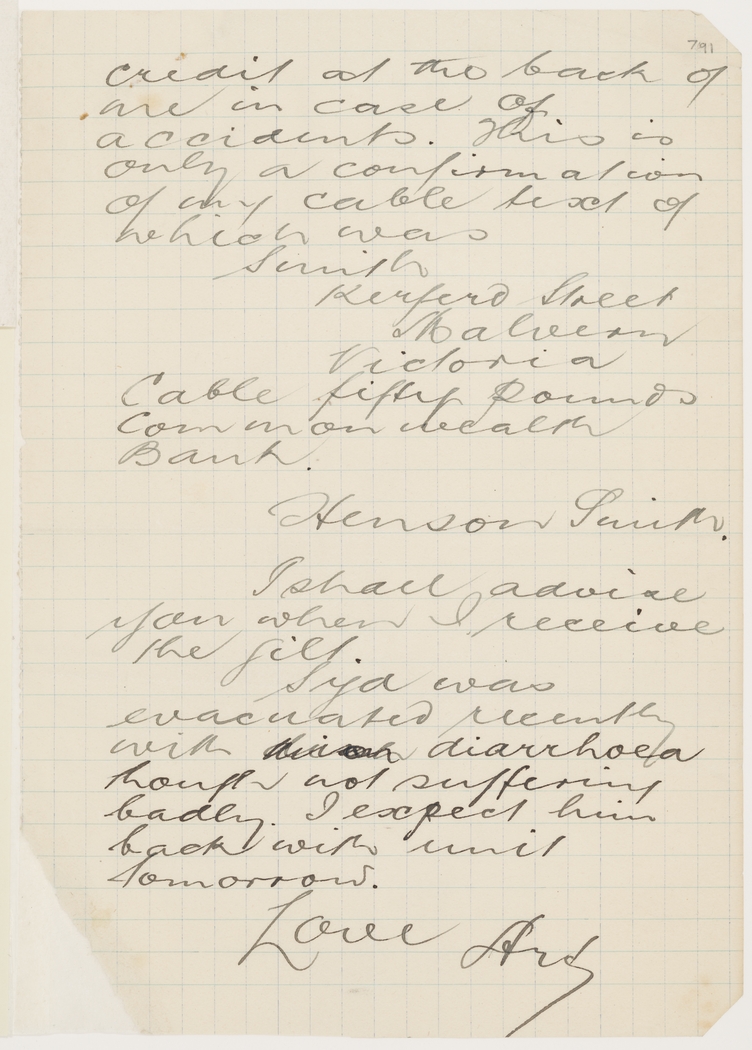 791
credit at the back of
me in case of
accidents. This is
only a confirmation
of my cable text of
which was
Smith
Kerferd Street
Malvern
Victoria
Cable fifty Pounds
Commonwealth
Bank.
Henson Smith.
I shall advise
you when I receive
the gilt.
Syd was
evacuated recently
with diarrhoea
though not suffering
badly. I expect him
back with unit
tomorrow.
Love